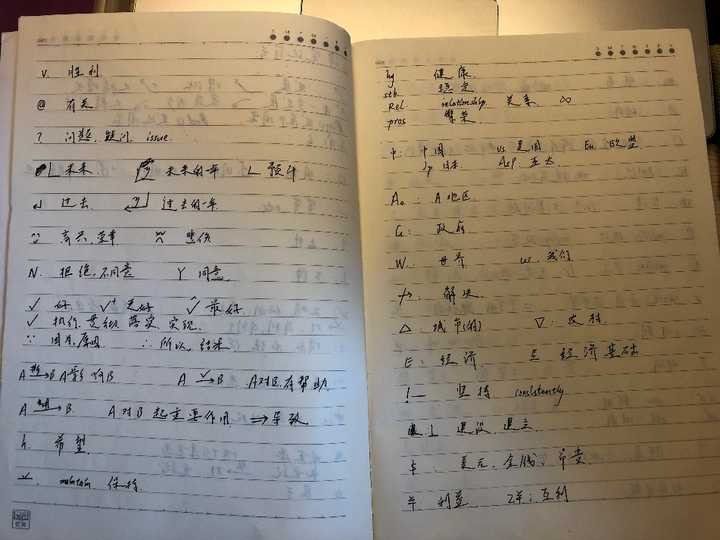 V. 胜利
@ 有关
? 问题, 疑问, issue.
未来. 未来的一年 预计
过去. 过去的一年
高兴, 至幸 悲伤
N. 拒绝, 不同意 Y 同意
✓ 好, ✓⁺ 更好 最好
✓ 执行, 贯彻 落实, 实现.
∵ 因为, 原因 ∴ 所以, 结果
A → B A影响B A → B A对B有帮助
A → B. A对B起主要作用 ⇒ 导致
h. 希望.
maintain, 保持.
hy 健康.
stb 稳定
Rel. relationship 关系 ∞
pros 繁荣
中: 中国 us 美国 Eu. 欧盟
Jp 日本 AsP. 亚太
A。: A地区
G: 政府
W. 世界 we. 我们
解决.
△ 城市 ▽: 农村.
E: 经济. 经济基础
!— 坚持 consistently.
⊥ 建设 建立
美元, 金钱, 货币
羊: 利益 2羊: 互利